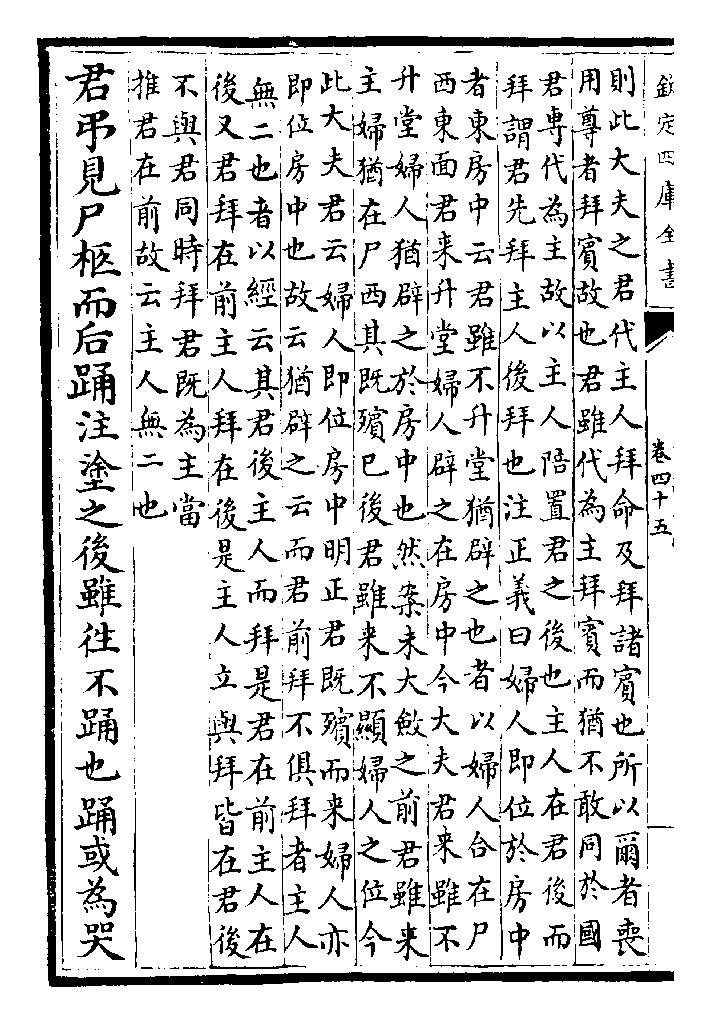 欽定四庫全書
卷四十五
則此大夫之君代主人拜命及拜諸賓也所以爾者喪
用尊者拜賓故也君雖代為主拜賓而猶不敢同於國
君專代為主故以主人陪置君之後也主人在君後而
拜謂君先拜主人後拜也注正義曰婦人即位於房中
者東房中云君雖不升堂猶辟之也者以婦人合在尸
西東面君來升堂婦人辟之在房中今大夫君來雖不
升堂婦人猶辟之於房中也然案未大斂之前君雖來
主婦猶在尸西其既殯已後君雖来不顯婦人之位今
此大夫君云婦人即位房中明正君既殯而来婦人亦
即位房中也故云猶辟之云而君前拜不俱拜者主人
無二也者以經云其君後主人而拜是君在前主人在
後又君拜在前主人拜在後是主人立與拜皆在君後
不與君同時拜君既為主當
推君在前故云主人無二也
君弔見尸柩而后踊注塗之後雖徃不踊也踊或為哭